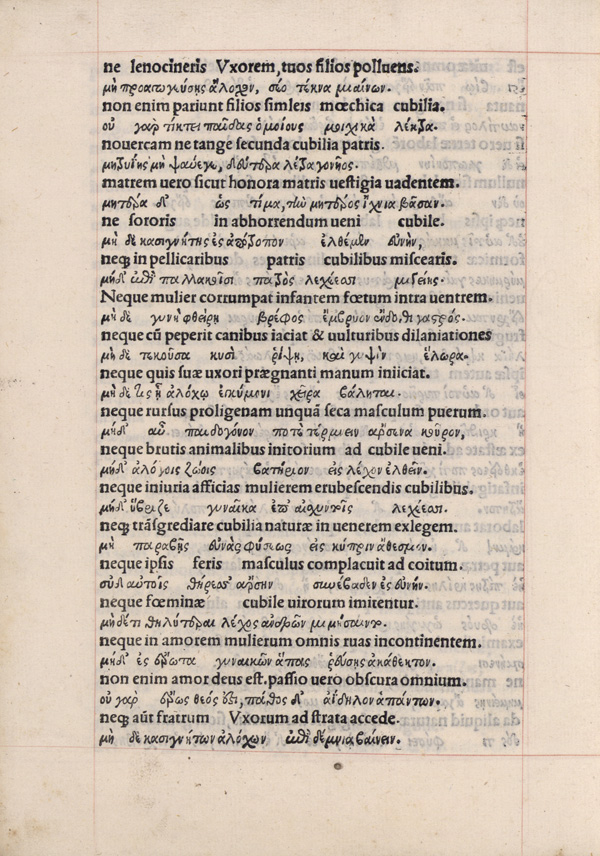 ne lenocineris Vxorem, tuos filios polluens.
μὴ προαγωγεύσης ἄλοχον, σέο τέκνα μιαίνων.
non enim pariunt filios simleis mœchica cubilia.
οὐ γὰρ τίκτει παῖδας ὁμοίους μοιχικὰ λέκτρα.
nouercam ne tange secunda cubilia patris.
μητρυιῆς μὴ ψαύειν, δεύτερα λέκτρα γονῆος.
matrem uero sicut honora matris uestigia uadentem.
μητέρα δ' ὡς τίμα, τὴν μητέρος ἴχνια βᾶσαν.
ne sororis in abhorrendum ueni cubile.
μὴ δὲ κασιγνήτης ἐς ἀπότροπον ἐλθέμεν εὐνήν,
neqꝫ in pellicaribus patris cubilibus miscearis.
μηδ' ἐπὶ παλλακίσι πατρὸς λεχέεσσι μιγείης.
Neque mulier corrumpat infantem fœtum intra uentrem.
μὴ δὲ γυνὴ φθείρη βρέφος ἔμβρυον ἔνδοθι γαστρός.
neque cū peperit canibus iaciat & uulturibus dilaniationes
μὴ δὲ τεκοῦσα κυσὶ ῥίψη, καὶ γυψὶν ἕλωρα.
neque quis suæ uxori prægnanti manum iniiciat.
μὴ δέ τις ᾗ ἀλόχω ἐγκύμονι χεῖρα βάληται.
neque rursus proligenam unquā seca masculum puerum.
μηδ' αὖ παιδογόνον ποτὲ τέμνειν ἄρσενα κοῦρον,
neque brutis animalibus initorium ad cubile ueni.
μηδ' ἀλόγοις ζώοις βατήριον εἰς λέχον ἐλθεῖν.
neque iniuria afficias mulierem erubescendis cubilibus.
μηδ' ὕβριζε γυναῖκα ἐπ' αἰσχυντοῖς λεχέεσσι.
neqꝫ trāsgrediare cubilia naturæ in uenerem exlegem.
μὴ παραβῆς εὐνὰς φύσεως εἰς κύπριν ἄθεσμον.
neque ipsis feris masculus complacuit ad coitum.
οὐδ' αὐτοῖς θήρεσσ' ἄρσην συνέβασεν ἐς εὐνήν.
neque fœminæ cubile uirorum imitentur.
μὴ δέ τι θηλύτεραι λέχος ἀνδρῶν μιμήσαιντο.
neque in amorem mulierum omnis ruas incontinentem.
μηδ' ἐς ἔρωτα γυναικῶν ἅπας ῥεύσης ἀκάθεκτον.
non enim amor deus est. passio uero obscura omnium.
οὐ γὰρ ἔρως θεός ἐστι, πάθος δ' ἀΐδηλον ἁπάντων.
neqꝫ aūt fratrum Vxorum ad strata accede.
μὴ δὲ κασιγνήτων ἀλόχων ἐπὶ δέμνια βαίνειν.